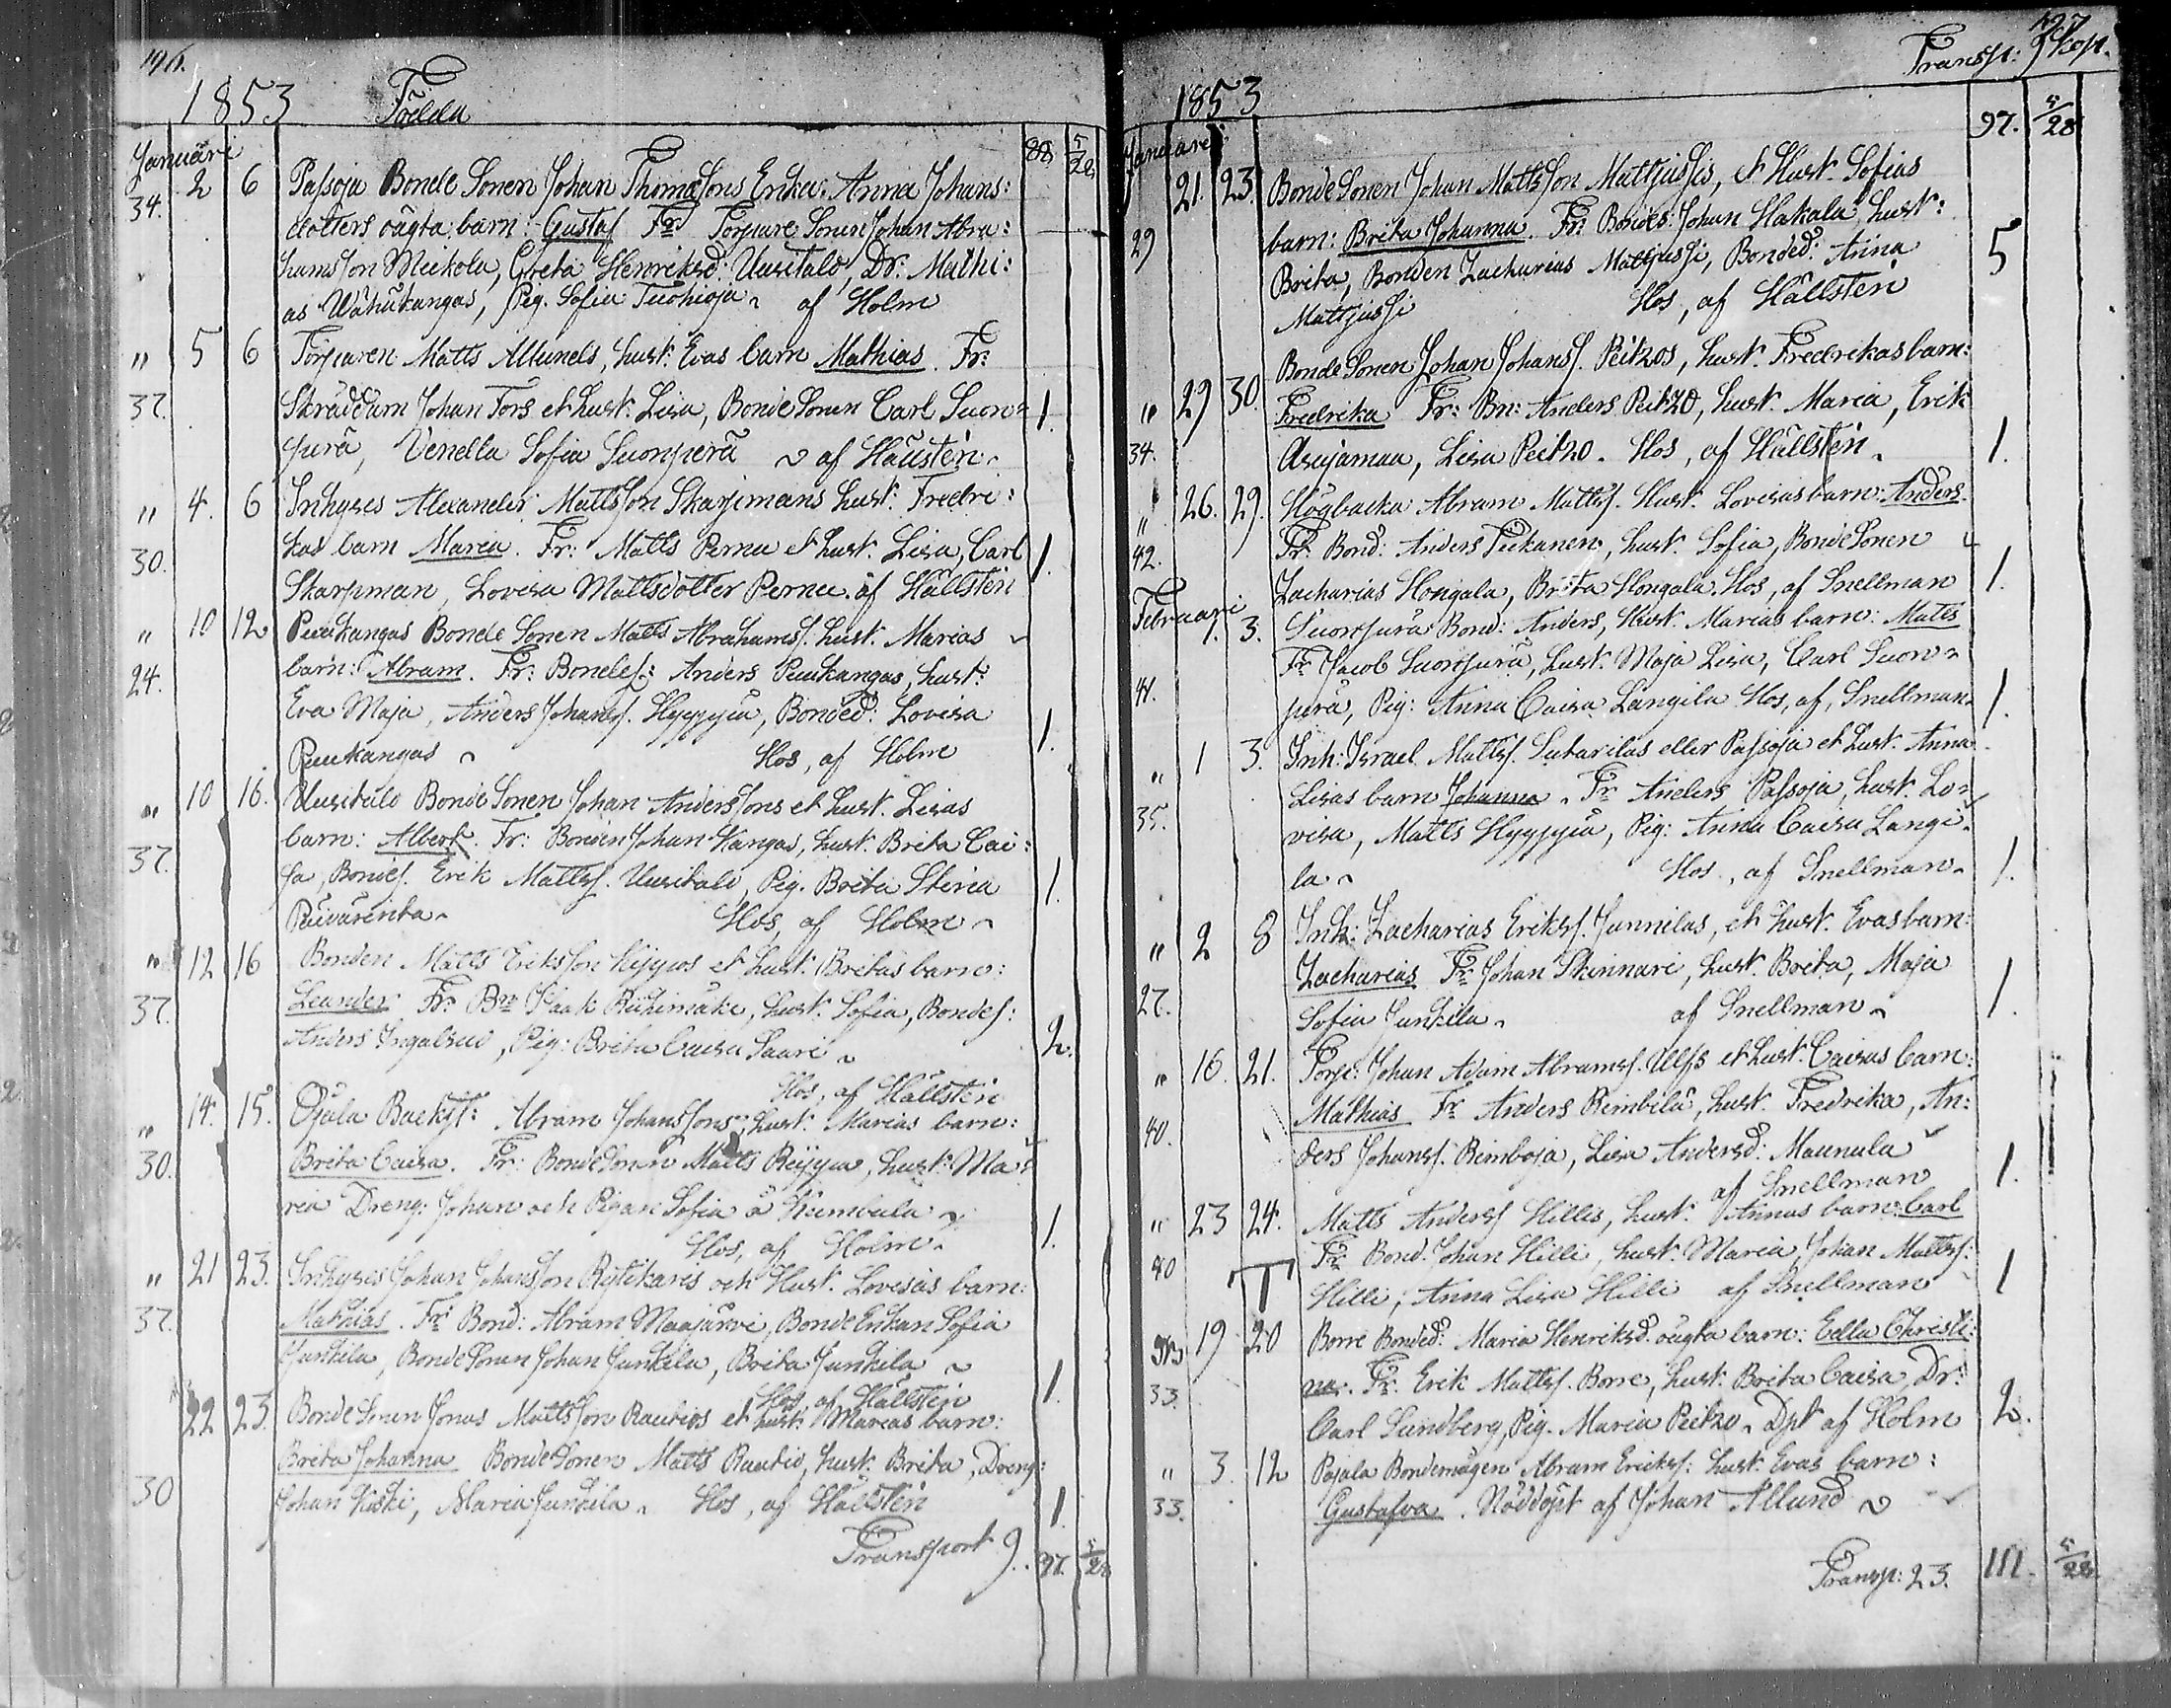 196.
1853 Födda
88 5/28
Januari
2 6 Passoja Bonde Sonen Johan Thomæsons Enka: Anna Johans:
34. dotters oägta barn: Gustaf Fr Torpare Sonen Johan Abra:
hamsson Mickola, Greta Henriksd: Uusitalo, Dr: Mathi:
as Wähäkangas, Pig. Sofia Tuohioja af Holm
" 5 6 Torparen Matts Allunds, hust. Evas barn Mathias. Fr:
37. Skräddarn Johan Fors et hust. Lisa, Bonde Sonen Carl Suon= 1.
perä, Venella Sofia Suonperä af Hällstén
" 4. 6 Inhyses Alexander Mattsson Skarpmans hust. Fredri:
30. kas barn Maria. Fr: Matts Pernu et hust. Lisa, Carl 1.
Skarpman, Lovisa Mattsdotter Pernu. af Hällstén
" 10 12 Puukangas Bonde Sonen Matts Abrahamss. hust. Marias
24. barn: Abram. Fr: Bondes: Anders Puukangas, hust.
Eva Maja, Anders Johanss. Hyypyä, Bonded: Lovisa
Puukangas Hos, af Holm 1.
" 10 16. Uusitalo Bonde Sonen Johan Anderssons et hust. Lisas
37. barn: Albert. Fr: Bonden Johan Kangas, hust. Brita Cai:
sa, Bondes. Erik Mattss. Uusitalo, Pig. Brita Stina 1.
Päivärinta Hos, af Holm
" 12 16 Bonden Matts Eriksson Kyyros et hust. Britas barn:
37. Leander Fr. Bn Isaak Riihimäki, hust. Sofia, Bondes:
Anders Ingalsuo, Pig: Brita Caisa Saari 2.
Hos, af Hällstén
" 14. 15. Ojala Backst: Abram Johanssons, hust. Marias barn:
30. Brita Caisa. Fr: Bonde Sonen Matts Reyyu, hust. Ma:
ria Dreng: Johan och Pigan Sofia å Humbula 1.
Hos, af Holm.
" 21 23. Inhyses Johan Johansson Rytikaris och Hust. Lovisas barn:
37. Mathias. Fr Bond: Abram Maajärvi, Bonde Enkan Sofia
Junkila, Bonde Sonen Johan Junkila, Brita Junkila 1.
Hos af Hällstén
22 23. Bonde Sonen Jonas Mattsson Rautios et hust. Marias barn:
Brita Johanna Bonde Sonen Matts Rautio, hust. Brita, Dreng:
30 Johan Kiski, Maria Junkila. Hos, af Hällstén 1.
Transport 9. 97. 5/28
Transp: 9 kop.
1853
97. 5/28
Januari
21. 23. Bonde Sonen Johan Mattsson Mattjussis, et Hust. Sofias
29 barn: Brita Johanna. Fr: Bondes: Johan Hakala, hust:
Brita, Bonden Zacharias Mattjussi, Bonded: Anna 5
Mattjussi Hos, af Hällstén
Bonde Sonen Johan Johanss. Peitzos, hust. Fredrikas barn:
" 29 30. Fredrika Fr: Bn: Anders Peitzo, hust. Maria, Erik
34. Asujamaa, Lisa Peitzo. Hos, af Hällstén. 1.
" 26. 29. Högbacka Abram Mattss. Hust. Lovisas barn: Anders.
42. Fr. Bond: Anders Pekanen, hust. Sofia, Bonde Sonen
Zacharias Hongala, Brita Hongala. Hos, af Snellman 1.
Februari
1. 3. Suonperä Bond: Anders, Hust. Marias barn: Matts
Fr Jacob Suonperä, hust. Maja Lisa, Carl Suon=
41. perä, Pig: Anna Caisa Längilä Hos, af, Snellman. 1.
" 1 3. Inh: Israel Mattss. Sutarilas eller Passoja et hust. Anna
35. Lisas barn Johanna. Fr Anders Passoja, hust. Lo=
visa, Matts Hyypyä, Pig: Anna Caisa Längi=
la. Hos, af Snellman. 1.
" 2 8 Inh: Zacharias Erikss. Junnilas, et hust. Evas barn:
27. Zacharias Fr Johan Skinnari, hust. Brita, Maja
Sofia Junkila. af Snellman 1.
" 16. 21. Torp: Johan Adam Abramss. Ulfs et hust. Caisas barn:
40. Mathias Fr Anders Rimbilä, hust. Fredrika, An:
ders Johanss. Rimboja, Lisa Andersd: Maunula 1.
af Snellman
" 23 24. Matts Anderss Hillis, hust. Annas barn: Carl
40 Fr Bond. Johan Hilli, hust. Maria, Johan Mattss:
Hilli, Anna Lisa Hilli af Snellman 1
19 20 Borre Bonded: Maria Henriksd. oägta barn: Edla Christi:
33. na. Fr: Erik Mattss. Borre, hust. Brita Caisa, Dr:
Carl Sundberg, Pig. Maria Peitzo. Dpt af Holm 2.
" 3. 12 Pajala Bondemågen Abram Erikss: hust. Evas barn:
33. Gustafva. Nöddöpt af Johan Allund
Transp: 23. 111. 5/28